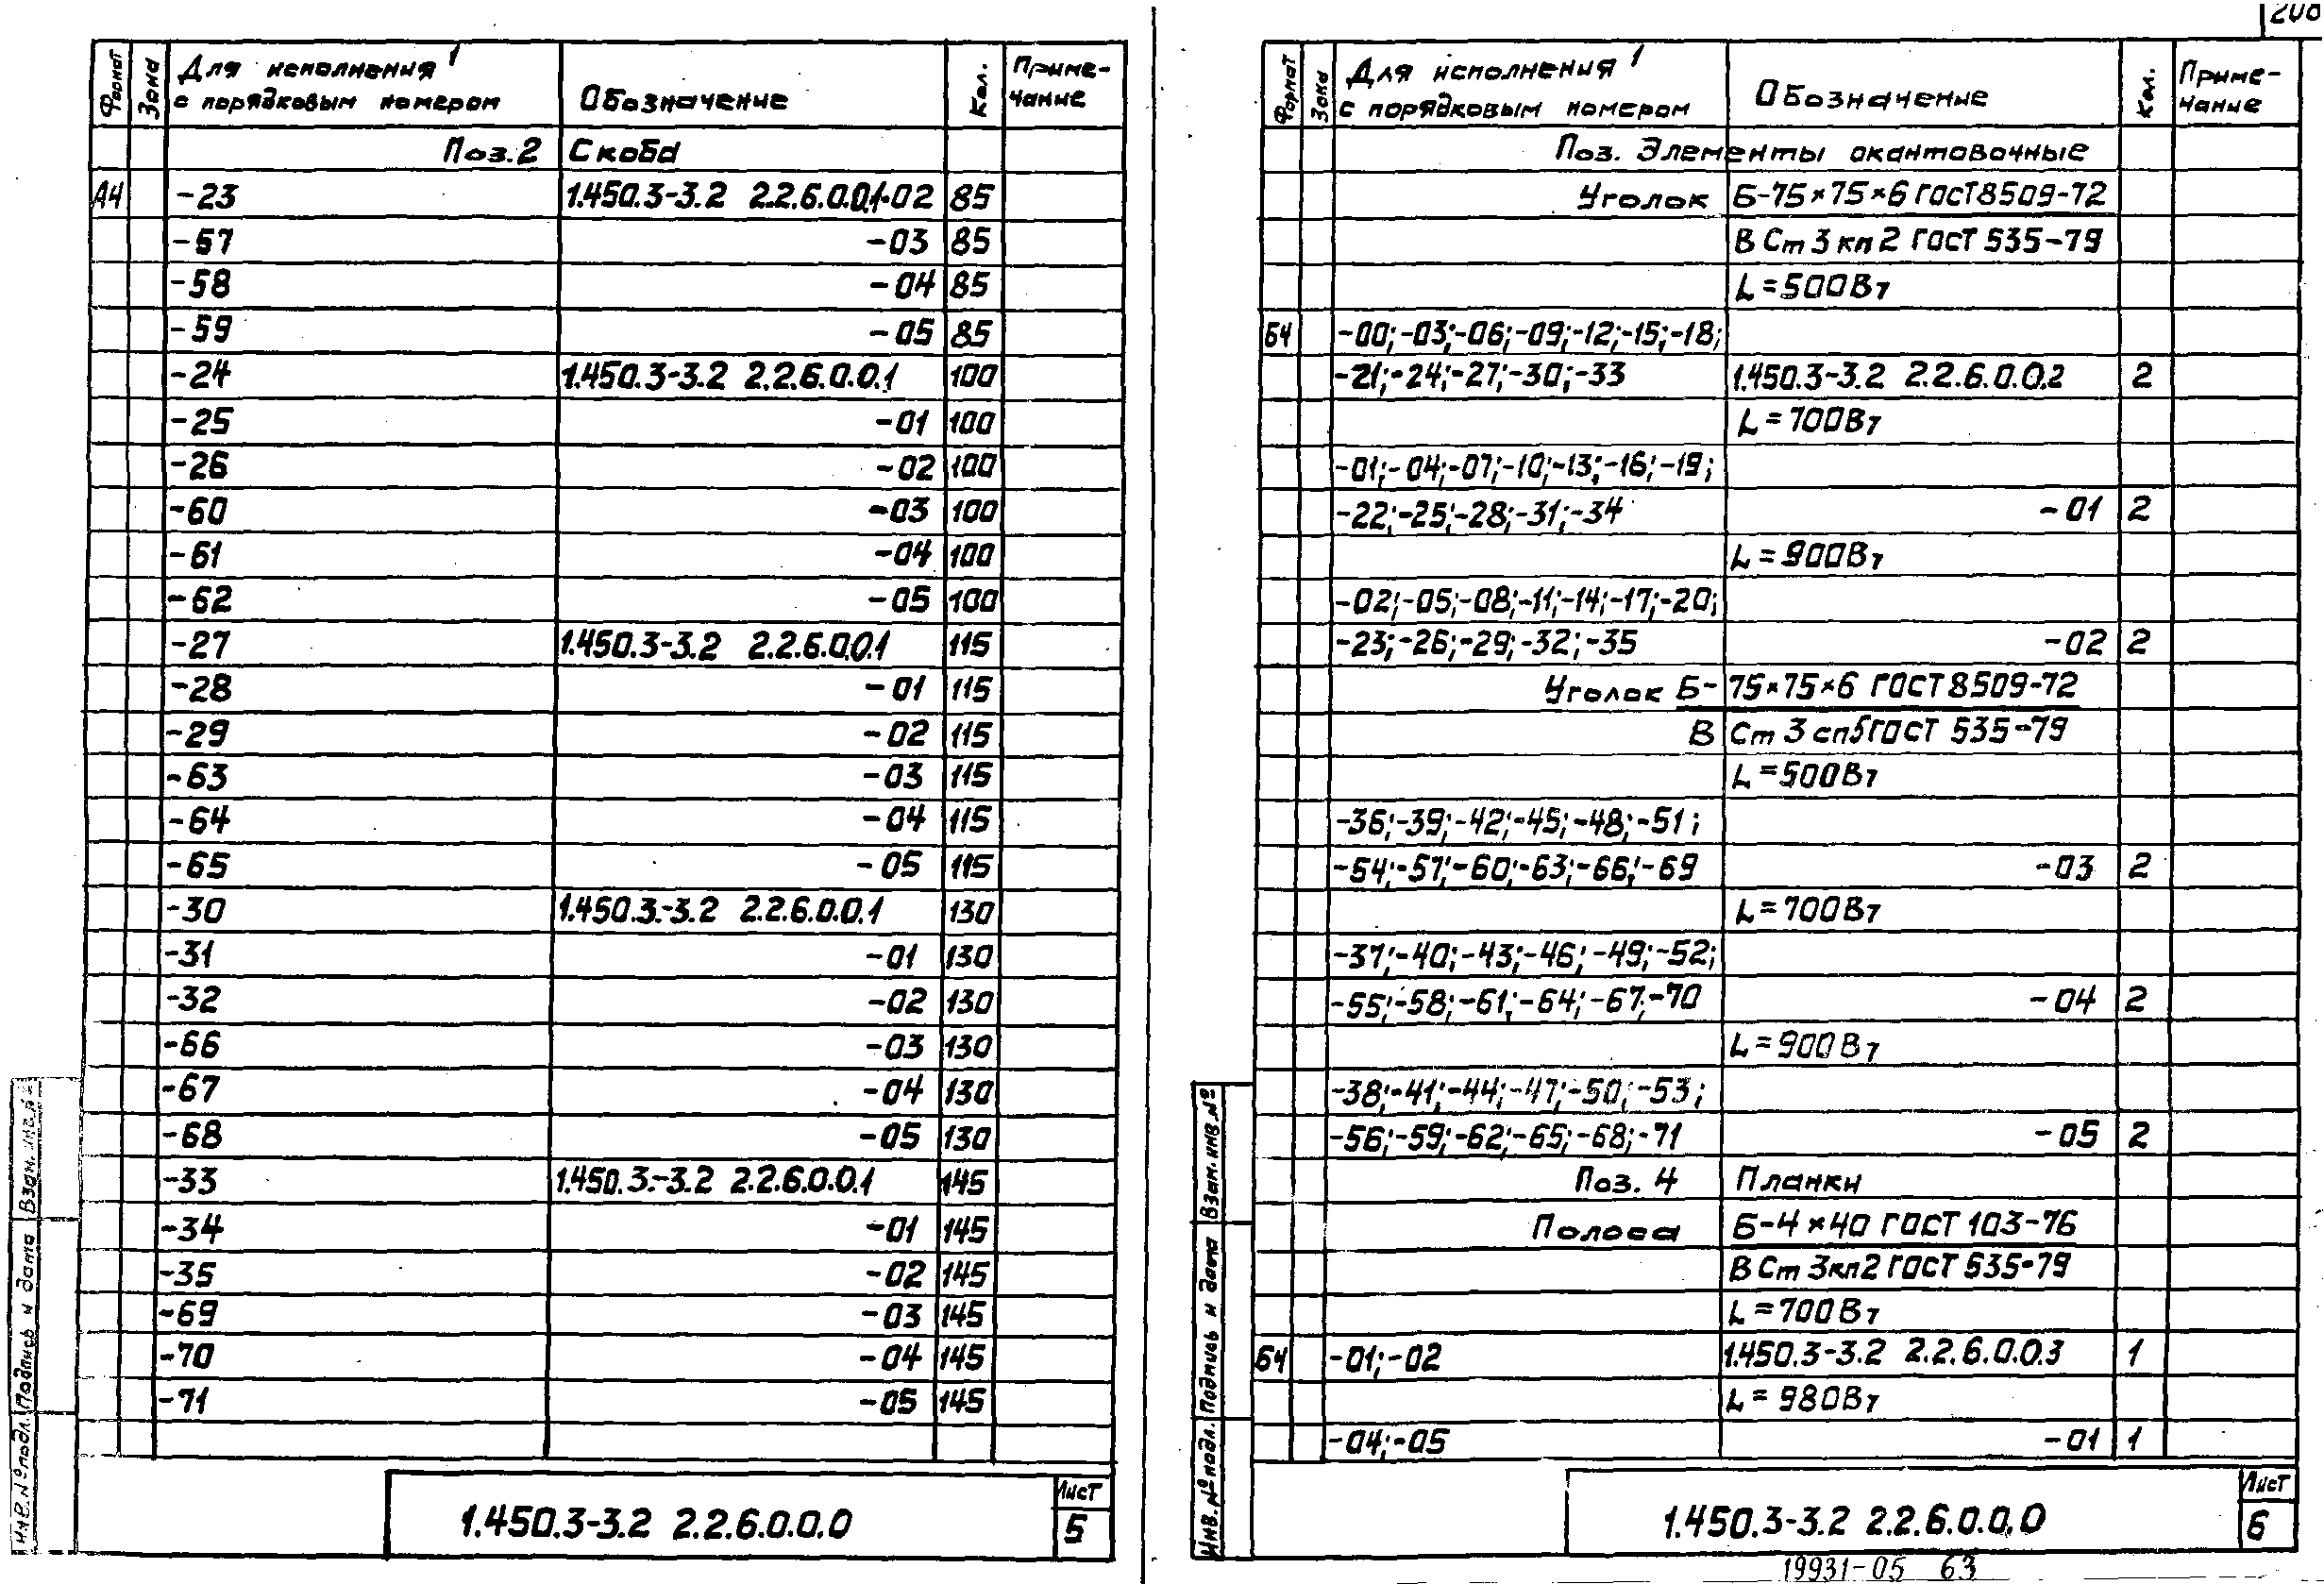 Формат Зона Для исполнения с порядковым номером Обозначение Кол. Приме-чание
Поз.2 Скоба
А4 -23 1.450.3-3.2 2.2.6.0.0.1-02 85
-57 -03 85
-58 -04 85
-59 -05 85
-24 1.450.3-3.2 2.2.6.0.0.1 100
-25 -01 100
-26 -02 100
-60 -03 100
-61 -04 100
-62 -05 100
-27 1.450.3-3.2 2.2.6.0.0.1 115
-28 -01 115
-29 -02 115
-63 -03 115
-64 -04 115
-65 -05 115
-30 1.450.3-3.2 2.2.6.0.0.1 130
-31 -01 130
-32 -02 130
-66 -03 130
-67 -04 130
-68 -05 130
-33 1.450.3-3.2 2.2.6.0.0.1 145
-34 -01 145
-35 -02 145
-69 -03 145
-70 -04 145
-71 -05 145
Инв.№подл. Подпись и дата Взам.инв.№
1.450.3-3.2 2.2.6.0.0.0
Лист
5
208
Формат Зона Для исполнения с порядковым номером Обозначение Кол. Приме-чание
Поз. Элементы окантовочные
Уголок Б-75×75×6 ГОСТ 8509-72
В Ст 3 кп 2 ГОСТ 535-79
L=500Вт
БЧ -00;-03;-06;-09;-12;-15;-18;
-21;-24;-27;-30;-33 1.450.3-3.2 2.2.6.0.0.2 2
L=700Вт
-01;-04;-07;-10;-13;-16;-19;
-22;-25;-28;-31;-34 -01 2
L=900Вт
-02;-05;-08;-11;-14;-17;-20;
-23;-26;-29;-32;-35 -02 2
Уголок Б-75×75×6 ГОСТ 8509-72
В Ст 3 сп5 ГОСТ 535-79
L=500Вт
-36;-39;-42;-45;-48;-51;
-54;-57;-60;-63;-66;-69 -03 2
L=700Вт
-37;-40;-43;-46;-49;-52;
-55;-58;-61;-64;-67;-70 -04 2
L=900Вт
-38;-41;-44;-47;-50;-53;
-56;-59;-62;-65;-68;-71 -05 2
Поз. 4 Планки
Полоса Б-4×40 ГОСТ 103-76
В Ст 3кп2 ГОСТ 535-79
L=700Вт
БЧ -01;-02 1.450.3-3.2 2.2.6.0.0.3 1
L=980Вт
-04;-05 -01 1
Инв.№подл. Подпись и дата Взам.инв.№
1.450.3-3.2 2.2.6.0.0.0
Лист
6
19931-05 63